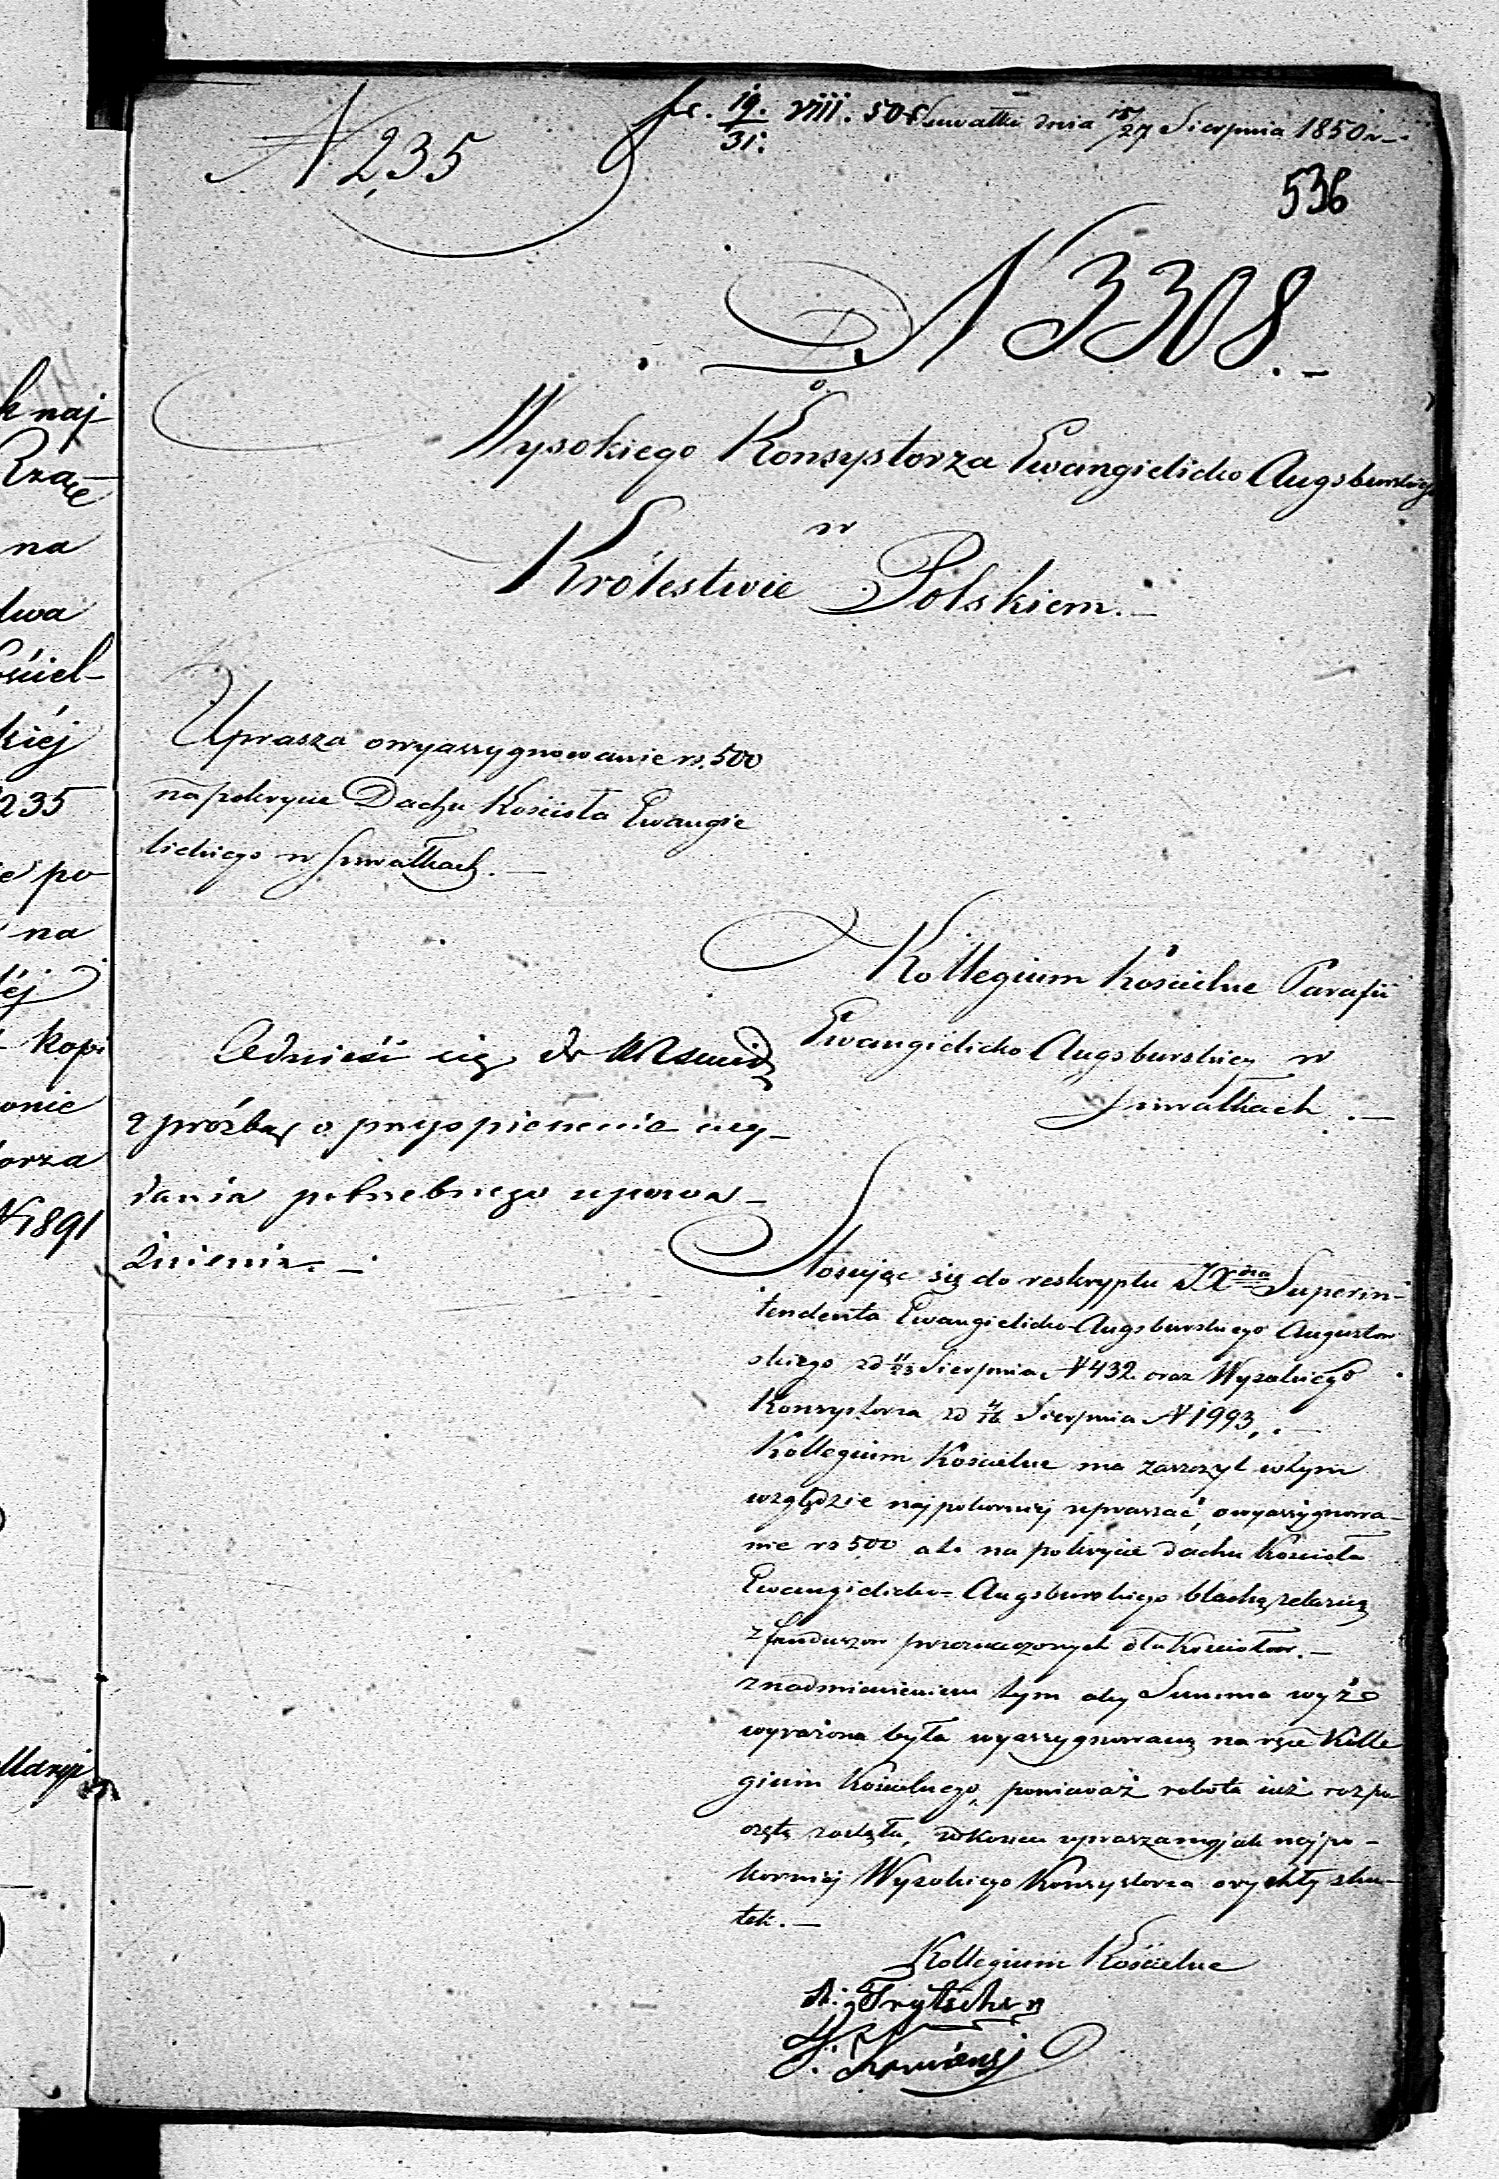 N 235
pr. 19/31. VIII. 50 Suwałki dnia 15/27 Sierpnia 1850 r
536
N 3308.
Do
Wysokiego Konsystorza Ewangielicko Augsburskiego
w
Królestwie Polskiem.
Uprasza o wyassygnowanie rs. 500
na pokrycie Dachu Kościoła Ewangie
lickiego w Suwałkach.
Kollegium Kościelne Parafii
Ewangielicko Augsburskiej w
Suwałkach.
Odnieść się do
z prośbą o przyspieszenie wy-
dania potrzebnego upowa-
żnienia.
Stosując się do reskryptu JXdza Superin-
tendenta Ewangielicko-Augsburskiego Augustow
skiego od 11/23 Sierpnia N 432 oraz Wysokiego
Konsystorza od 4/16 Sierpnia N 1993,
Kollegium Kościelne ma zaszczyt w tym
względzie najpokorniej upraszać, o wyassygnowa-
nie rs 500 ale na pokrycie dachu Kościoła
Ewangielicko-Augsburskiego blachą żelazną
z funduszow przeznaczonych dla Kościołow.
z nadmienieniem tym aby Summa wyżé
wyrażona była wyassygnowaną na ręce Kolle
gium Kościelnego, ponieważ robota już rozpo
częta została, w końcu upraszamy jak najpo-
korniej Wysokiego Konsystorza o rychły sku-
tek.
Kollegium Kościelne
k naj-
na
dwa
ściel-
kiéj
235
po
na
kopi
onie
orza
N 1891